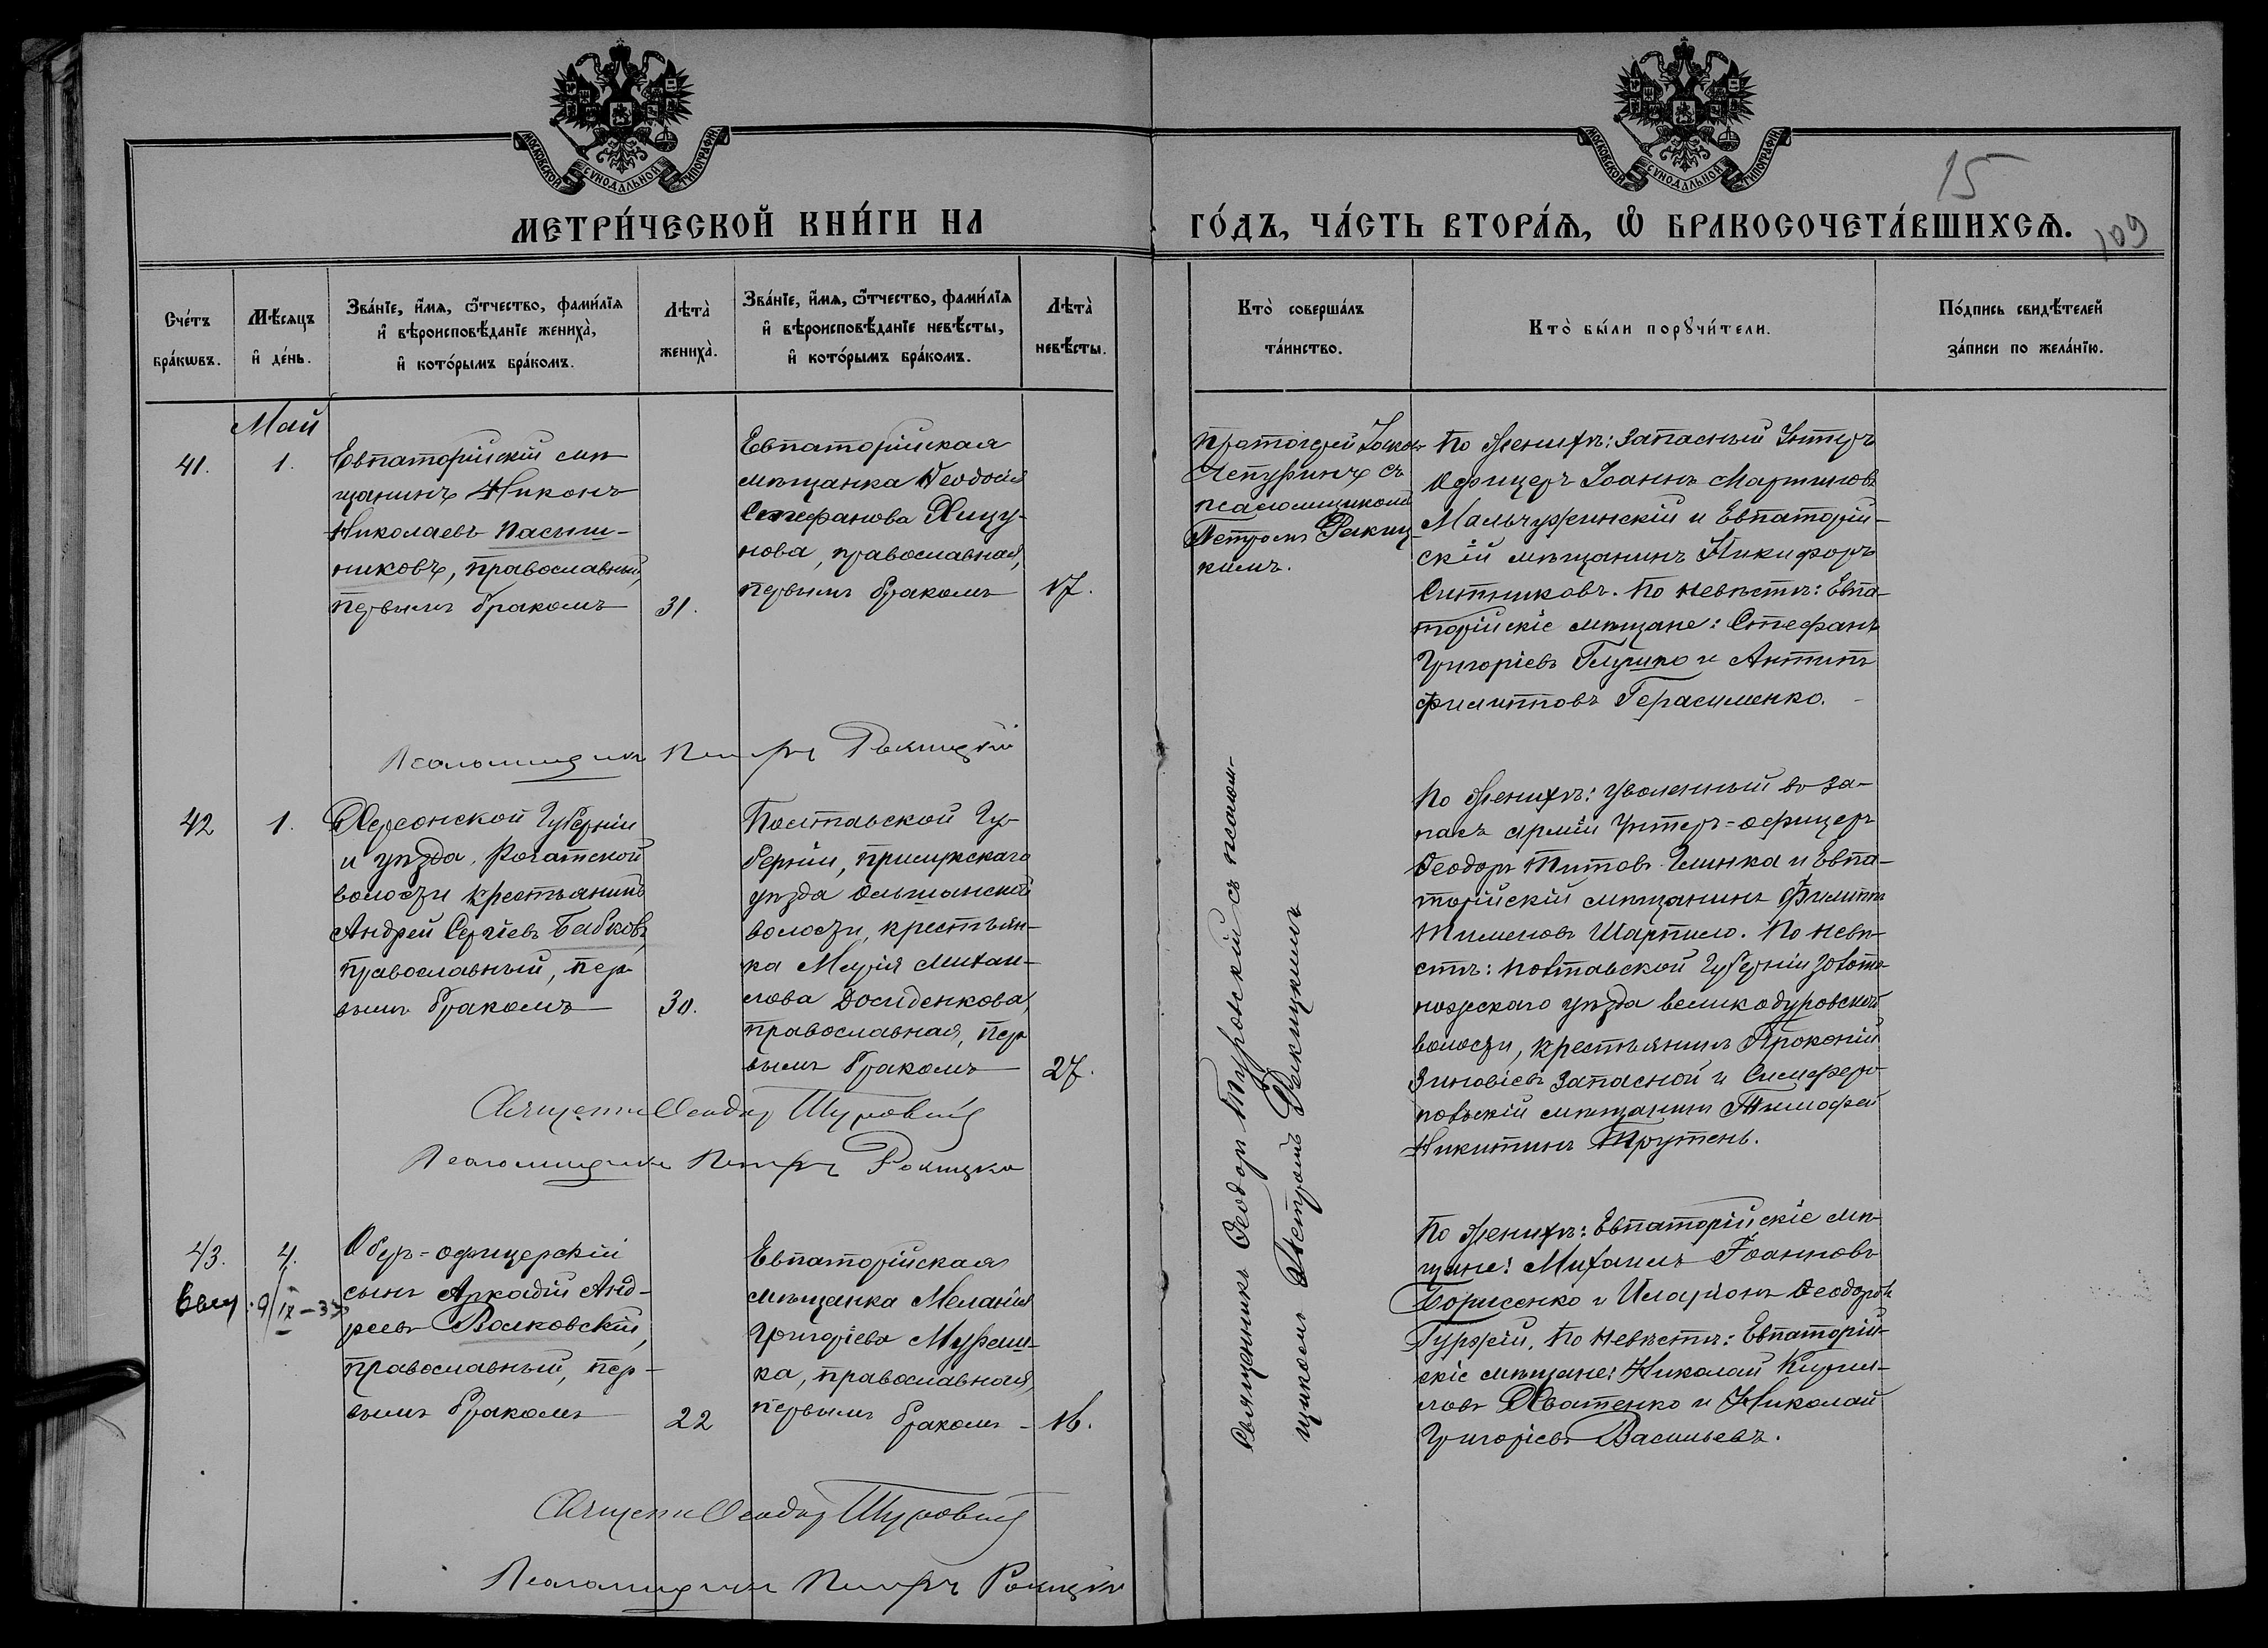 МОСКОВСКОЙ СѴНОДАЛЬНОЙ ТИПОГРАФІИ
МОСКОВСКОЙ СѴНОДАЛЬНОЙ ТИПОГРАФІИ
15
МЕТРИ́ЧЕСКОЙ КНИ́ГИ НА ГО́ДЪ, ЧА́СТЬ ВТОРА́Ѧ, Ѡ҆ БРАКОСОЧЕТА́ВШИХСѦ.
109
Сче́тъ бра́кѡвъ.
Мѣ́сяцъ и҆ де́нь.
Зва́нїе, и҆́мѧ, ѻ҆́тчество, фами́лїѧ
и҆ вѣроисповѣ́данїе жениха̀,
и҆ кото́рымъ бра́комъ.
Лѣта̀ жениха̀.
Зва́нїе, и҆́мѧ, ѻ҆́тчество, фами́лїѧ
и҆ вѣроисповѣ́данїе невѣ́сты,
и҆ кото́рымъ бра́комъ.
Лѣта̀ невѣ́сты.
Кто̀ соверша́лъ та́инство.
Кто̀ бы́ли порꙋчи́тели.
По́дпись свидѣ́телей
за́писи по жела́нїю.
Май
41.
1.
Евпаторійскій мѣ-
щанинъ Никонъ
Николаевъ Пасѣш-
никовъ, православный,
первымъ бракомъ
31.
Евпаторійская
мѣщанка Ѳеодосія
Стефанова Хицу-
нова, православная,
первымъ бракомъ
17.
Протоіерей Іаковъ
Чепуринъ съ
псаломщикомъ
Петромъ Рекиц-
кимъ.
По женихѣ: запасный Унтеръ
Офицеръ Іоаннъ Мартиновъ
Мальчужинскій и Евпаторій-
скій мѣщанинъ Никифоръ
Ситниковъ. По невѣстѣ: Евпа-
торійскіе мѣщане: Стефанъ
Григоріевъ Глушко и Антипъ
Филипповъ Герасименко.
Псаломщикъ Петръ Рекицкій
42
1.
Херсонской Губерніи
и уѣзда, Рогатской
волости крестьянинъ
Андрей Сергіевъ Бабковъ,
православный, пер-
вымъ бракомъ
30.
Полтавской Гу-
берніи, Прилукскаго
уѣзда Ольшанской
волости, крестьян-
ка Марія Михаи-
лова Досиденкова,
православная, пер-
вымъ бракомъ
27.
Священникъ Ѳеодоръ Туровскій съ псалом-
щикомъ Петромъ Рекицкимъ
По женихѣ: уволенный въ за-
пасъ арміи Унтеръ-офицеръ
Ѳеодоръ Титовъ Глинка и Евпа-
торійскій мѣщанинъ Филиппъ
Тимеловъ Шарпило. По невѣ-
стѣ: Полтавской Губерніи Золото-
ножскаго уѣзда великодуровской
волости, крестьянинъ Прокопій
Зиновіевъ Запасной и Симферо-
польскій мѣщанинъ Тимофей
Никитинъ Трутень.
Священникъ Ѳеодоръ Туровскій
Псаломщикъ Петръ Рекицкій
43.
4.
9/IX-33
Оберъ-офицерскій
сынъ Аркадій Анд-
реевъ Волковскій,
православный, пер-
вымъ бракомъ
22
Евпаторійская
мѣщанка Меланія
Григоріева Муреш-
ка, православная,
первымъ бракомъ
16.
По женихѣ: Евпаторійскіе мѣ-
щане: Михаилъ Іоанновъ
Борисенко и Иларіонъ Ѳеодоровъ
Гуржій. По невѣстѣ: Евпаторій-
скіе мѣщане: Николай Кирил-
ловъ Хватенко и Николай
Григоріевъ Васильевъ.
Священникъ Ѳеодоръ Туровскій
Псаломщикъ Петръ Рекицкій